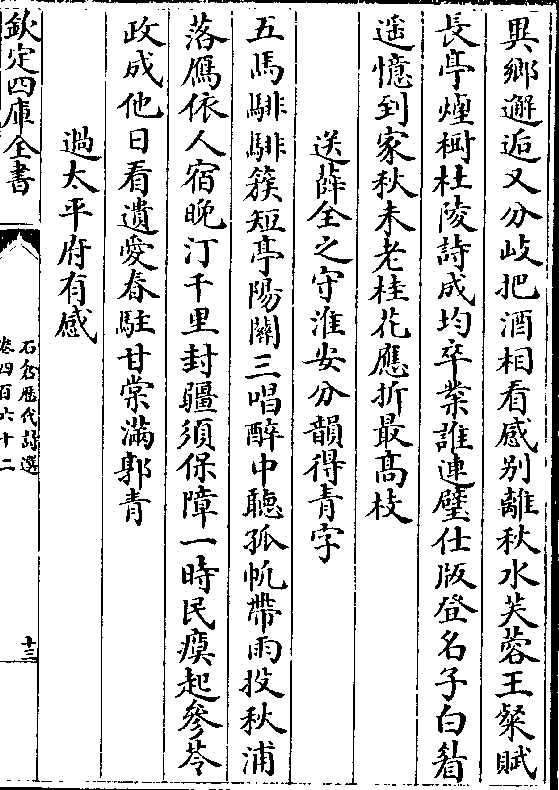 異鄉邂逅又分岐把酒相看感别離秋水芙蓉王粲賦
長亭煙樹杜陵詩成均卒業誰連璧仕版登名子白眉
遥憶到家秋未老桂花應折最髙枝
送薛全之守淮安分韻得青字
五馬騑騑簇短亭陽關三唱醉中聽孤帆帶雨投秋浦
落鴈依人宿晚汀千里封疆須保障一時民瘼起參苓
政成他日看遺愛春駐甘棠滿郭青
過太平府有感
欽定四庫全書
石倉歷代詩選
卷四百六十二
十三